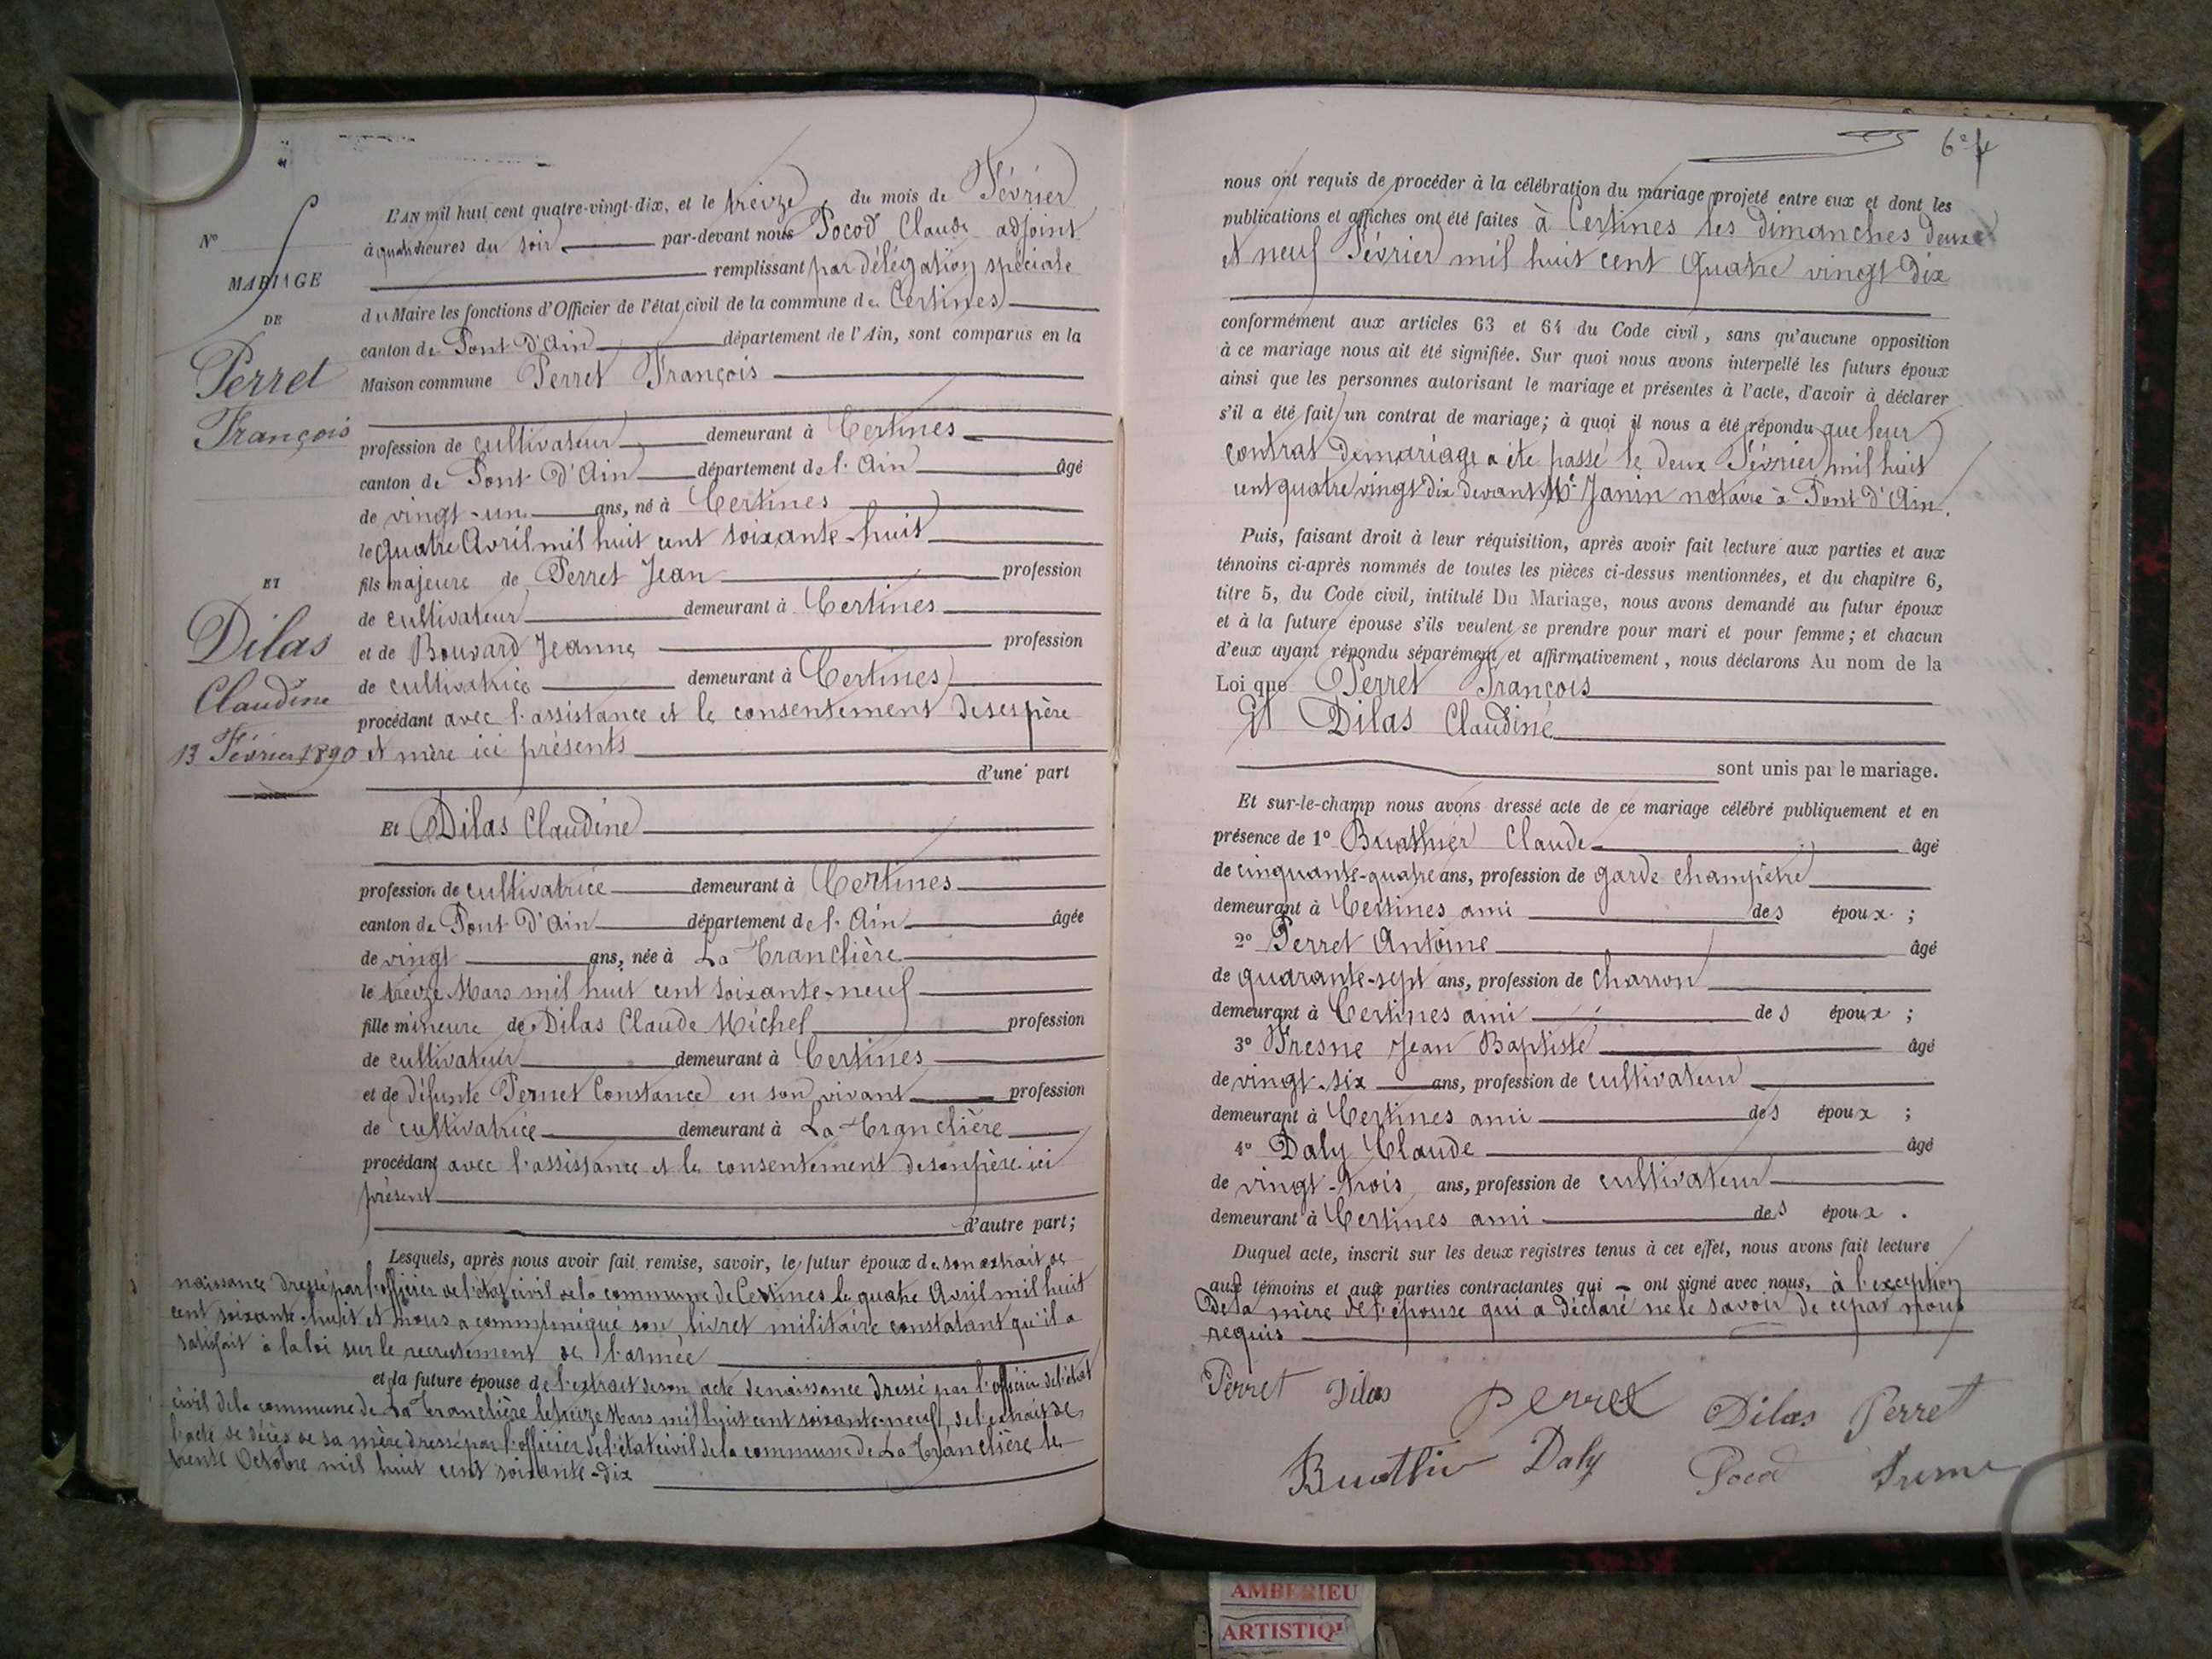 L'AN mil huit cent quatre-vingt-dix, et le treize du mois de Février
à quatre heures du soir par-devant nous Pocod Claude adjoint
remplissant par délégation spéciale
du Maire les fonctions d'Officier de l'état civil de la commune de Certines
canton de Pont-d'Ain département de l'Ain, sont comparus en la
Maison commune Perret François
profession de cultivateur demeurant à Certines
canton de Pont-d'Ain département de l'Ain âgé
de vingt-un ans, né à Certines
le quatre Avril mil huit cent soixante-huit
fils majeure de Perret Jean profession
de cultivateur demeurant à Certines
et de Bouvard Jeanne profession
de cultivatrice demeurant à Certines
procédant avec l'assistance et le consentement de ses père
et mère ici présents
d'une part
Et Dilas Claudine
profession de cultivatrice demeurant à Certines
canton de Pont-d'Ain département de l'Ain âgée
de vingt ans, née à La Tranclière
le treize Mars mil huit cent soixante-neuf
fille mineure de Dilas Claude Michel profession
de cultivateur demeurant à Certines
et de défunte Pernet Constance en son vivant profession
de cultivatrice demeurant à La Tranclière
procédant avec l'assistance et le consentement de son père ici
présent
d'autre part;
Lesquels, après nous avoir fait remise, savoir, le futur époux de son extrait de
naissance dressé par l'officier de l'état civil de la commune de Certines le quatre Avril mil huit
cent soixante-huit et nous a communiqué son livret militaire constatant qu'il a
satisfait à la loi sur le recrutement de l'armée
et la future épouse de l'extrait de son acte de naissance dressé par l'officier de l'état
civil de la commune de La Tranclière le treize Mars mil huit cent soixante-neuf, de l'extrait de
l'acte de décès de sa mère dressé par l'officier de l'état civil de la commune de La Tranclière le
trente Octobre mil huit cent soixante-dix
N°
MARIAGE
DE
Perret
François
ET
Dilas
Claudine
13 Février 1890
nous ont requis de procéder à la célébration du mariage projeté entre eux et dont les
publications et affiches ont été faites à Certines les dimanches deux
et neuf Février mil huit cent quatre vingt dix
conformément aux articles 63 et 64 du Code civil, sans qu'aucune opposition
à ce mariage nous ait été signifiée. Sur quoi nous avons interpellé les futurs époux
ainsi que les personnes autorisant le mariage et présentes à l'acte, d'avoir à déclarer
s'il a été fait un contrat de mariage; à quoi il nous a été répondu que leur
contrat de mariage a été passé le deux Février mil huit
cent quatre vingt dix devant Me Janin notaire à Pont-d'Ain.
Puis, faisant droit à leur réquisition, après avoir fait lecture aux parties et aux
témoins ci-après nommés de toutes les pièces ci-dessus mentionnées, et du chapitre 6,
titre 5, du Code civil, intitulé Du Mariage, nous avons demandé au futur époux
et à la future épouse s'ils veulent se prendre pour mari et pour femme; et chacun
d'eux ayant répondu séparément et affirmativement, nous déclarons Au nom de la
Loi que Perret François
Et Dilas Claudine
sont unis par le mariage.
Et sur-le-champ nous avons dressé acte de ce mariage célébré publiquement et en
présence de 1° Buathier Claude âgé
de cinquante-quatre ans, profession de garde champêtre
demeurant à Certines ami des époux ;
2° Perret Antoine âgé
de quarante-sept ans, profession de charron
demeurant à Certines ami des époux ;
3° Fresne Jean Baptiste âgé
de vingt-six ans, profession de cultivateur
demeurant à Certines ami des époux ;
4° Daly Claude âgé
de vingt-trois ans, profession de cultivateur
demeurant à Certines ami des époux .
Duquel acte, inscrit sur les deux registres tenus à cet effet, nous avons fait lecture
aux témoins et aux parties contractantes qui ont signé avec nous, à l'exception
de la mère de l'épouse qui a déclaré ne le savoir de ce par nous
requis
Perret Dilas Perret Dilas Perret
Buathier Daly Pocod
AMBERIEU
ARTISTIQ